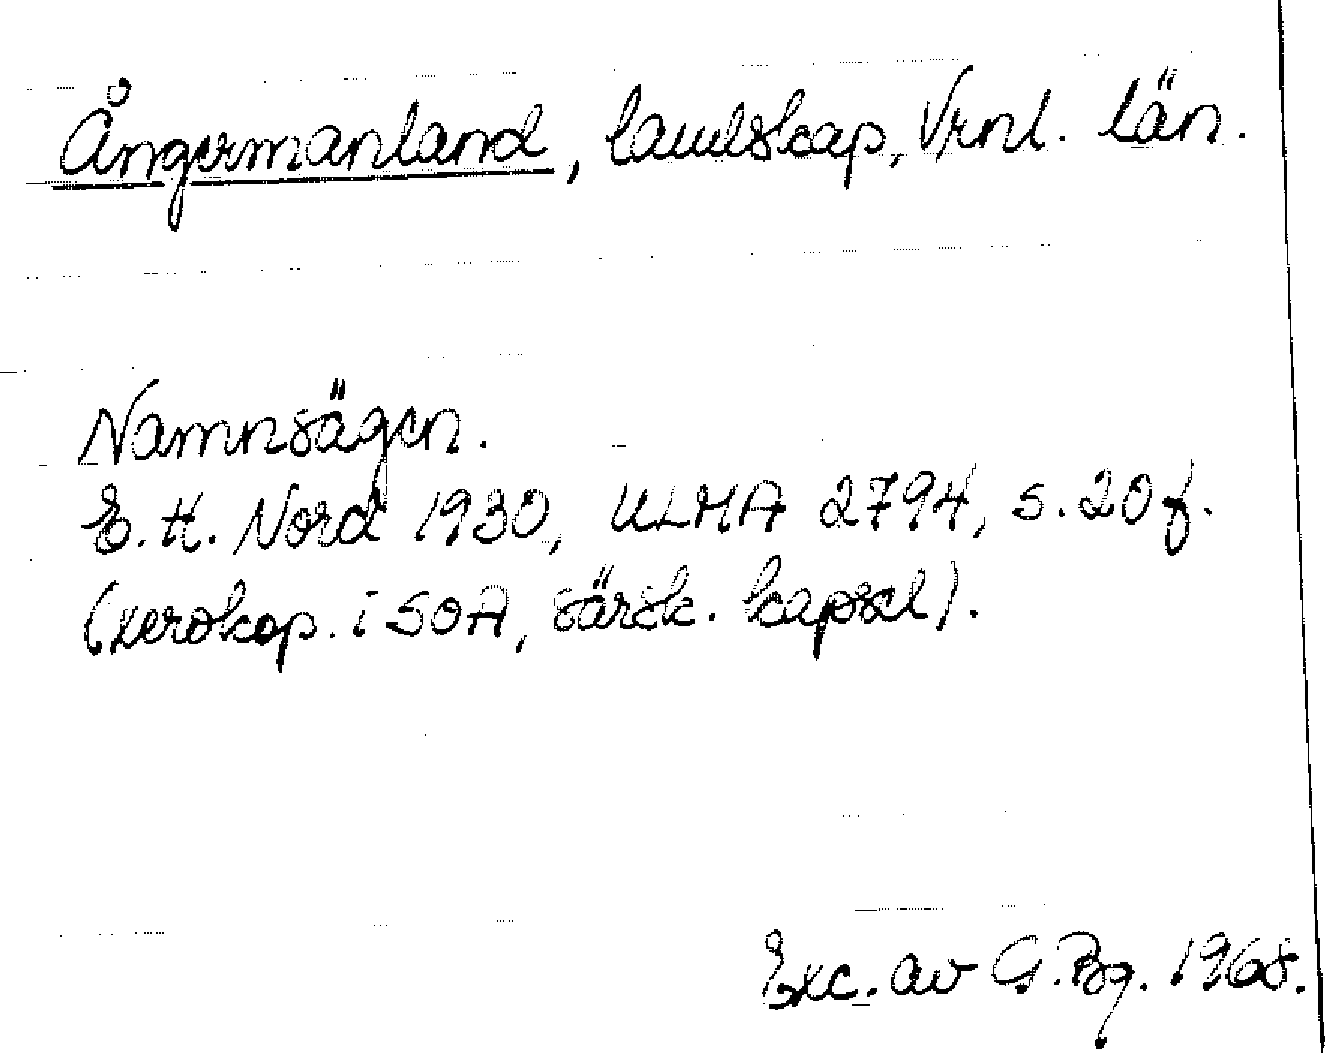 Ångermanland, landskap, Vrnl. län.
Namnsägen.
E. H. Nord 1930, ULMA 2794, s. 20 f.
(xerokop. i SOA, särsk. kapsel).
Exc. av G. Bg. 1968.